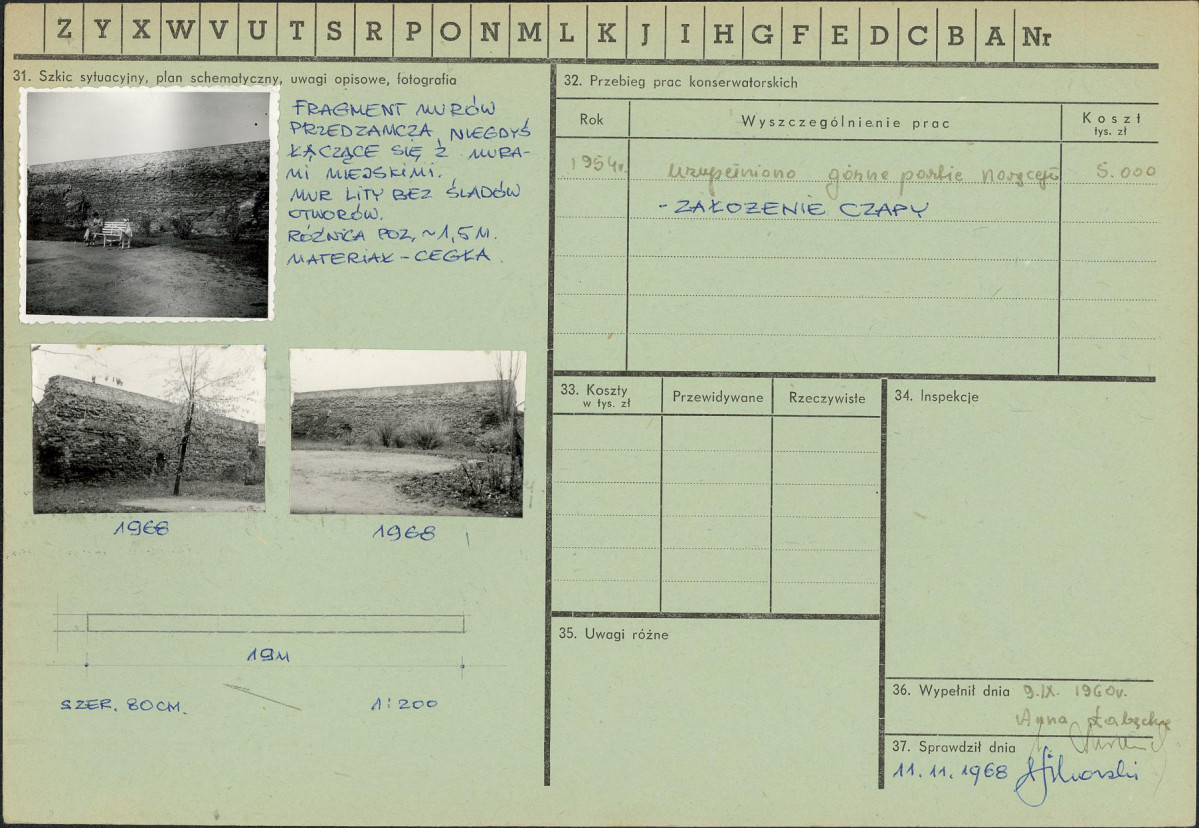 Z Y X W V U T S R P O N M L K J I H G F E D C B A Nr
31. Szkic sytuacyjny, plan schematyczny, uwagi opisowe, fotografia
FRAGMENT MURÓW
PRZEDZAMCZA, NIEGDYŚ
ŁĄCZĄCE SIĘ Z MURA-
MI MIEJSKIMI.
MUR LITY BEZ ŚLADÓW
OTWORÓW.
RÓŻNICA POZ. ~1,5M.
MATERIAŁ - CEGŁA.
1968
1968
19M
SZER. 80CM.
1:200
32. Przebieg prac konserwatorskich
Rok
Wyszczególnienie prac
Koszt
tys. zł
1954r. uzupełniono górne partie 5.000
- ZAŁOŻENIE CZAPY
33. Koszty
w tys. zł
Przewidywane
Rzeczywiste
34. Inspekcje
35. Uwagi różne
36. Wypełnił dnia 9.IX. 1960r.
Anna
37. Sprawdził dnia
11.11.1968